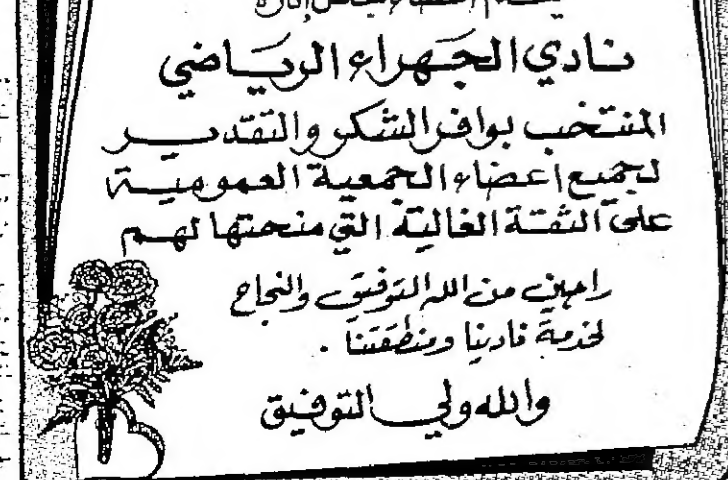 نادي الجهراء الرياضي
المنتخب بوافر الشكر والتقدير
لجميع اعضاء الجمعية العمومية
على الثقة الغالية التي منحتها لهم
راجين من الله التوفيق والنجاح
لخدمة نادينا ومنطقتنا .
والله ولي التوفيق